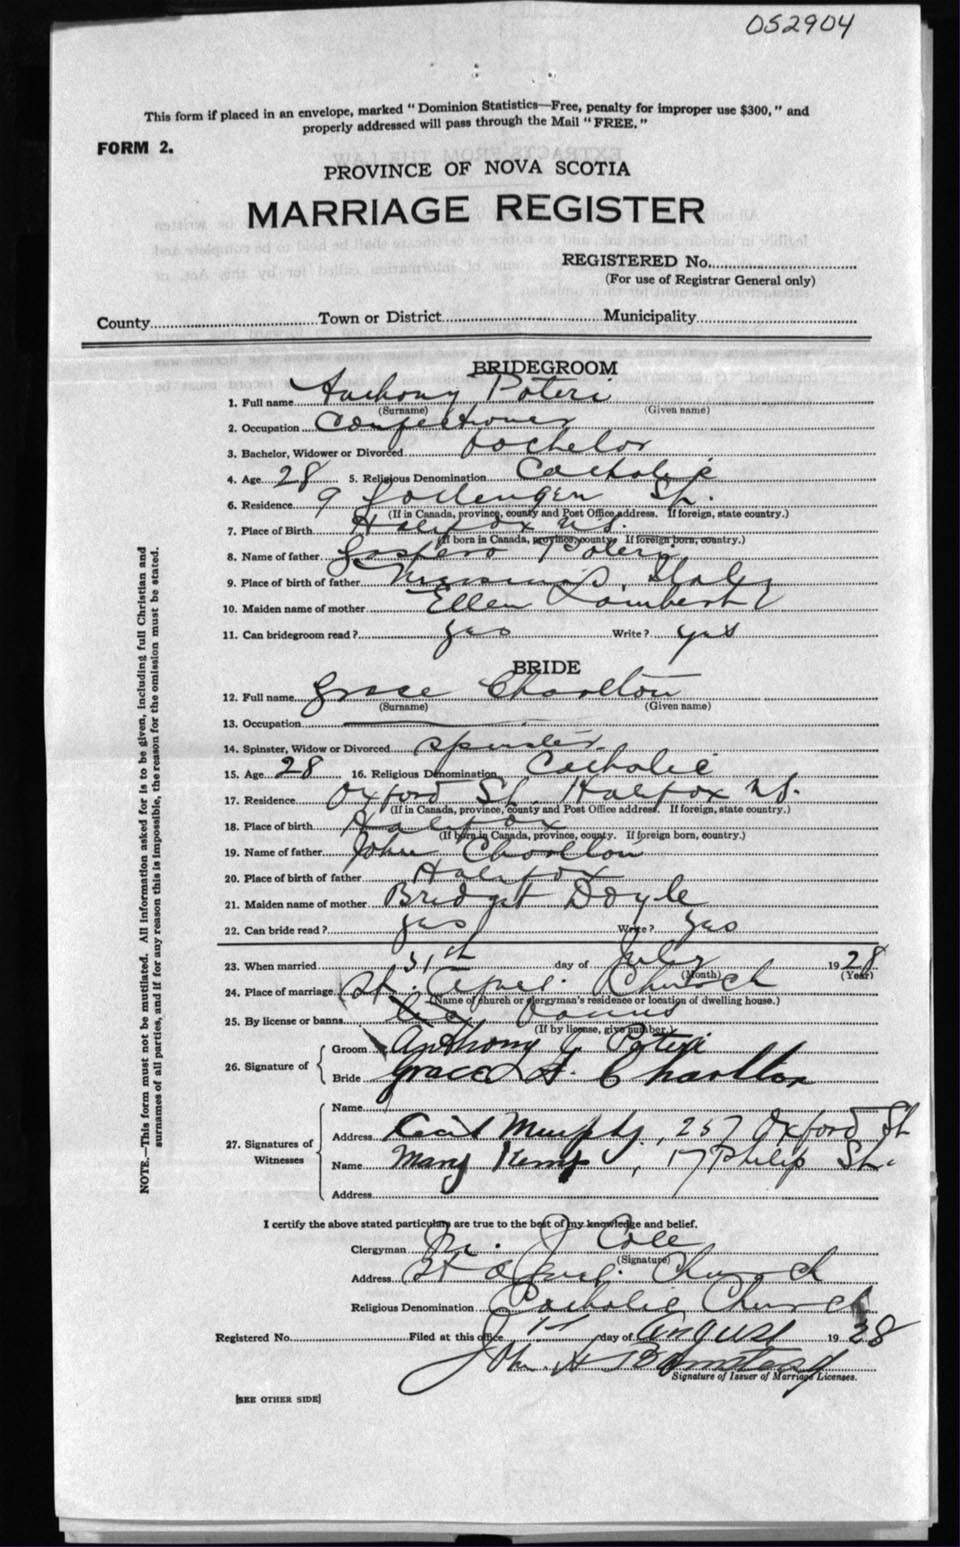 052904
This form if placed in an envelope, marked "Dominion Statistics—Free, penalty for improper use $300," and
properly addressed will pass through the Mail "FREE."
FORM 2.
PROVINCE OF NOVA SCOTIA
MARRIAGE REGISTER
REGISTERED No.
(For use of Registrar General only)
County Town or District Municipality
BRIDEGROOM
1. Full name Anthony Poteri
(Surname) (Given name)
2. Occupation Confectioner
3. Bachelor, Widower or Divorced bachelor
4. Age 28 5. Religious Denomination Catholic
6. Residence 9 St.
(If in Canada, province, county and Post Office address. If foreign, state country.)
7. Place of Birth Halifax N.S.
(If born in Canada, province, county. If foreign born, country.)
8. Name of father Poteri
9. Place of birth of father Italy
10. Maiden name of mother Ellen Lambert
11. Can bridegroom read? yes Write? yes
BRIDE
12. Full name Grace Charlton
(Surname) (Given name)
13. Occupation
14. Spinster, Widow or Divorced spinster
15. Age 28 16. Religious Denomination Catholic
17. Residence Oxford St. Halifax N.S.
(If in Canada, province, county and Post Office address. If foreign, state country.)
18. Place of birth Halifax
(If born in Canada, province, county. If foreign born, country.)
19. Name of father John Charlton
20. Place of birth of father Halifax
21. Maiden name of mother Bridget Doyle
22. Can bride read? yes Write? yes
23. When married 31th day of July 1928
(Month) (Year)
24. Place of marriage St. Agnes. Church
(Name of church or clergyman's residence or location of dwelling house.)
25. By license or banns banns
(If by license, give number.)
26. Signature of
Groom Anthony J Poteri
Bride Grace A. Charlton
27. Signatures of
Witnesses
Name
Address Cecil Murphy, 257 Oxford St
Name Mary Kemp, 17 Philip St.
Address
I certify the above stated particulars are true to the best of my knowledge and belief.
Clergyman J Cole
(Signature)
Address St Agnes. Church
Religious Denomination Catholic Church
Registered No. Filed at this office 1st day of August 1928
John H
Signature of Issuer of Marriage Licenses.
[SEE OTHER SIDE]
NOTE.—This form must not be mutilated. All information asked for is to be given, including full Christian and
surnames of all parties, and if for any reason this is impossible, the reason for the omission must be stated.